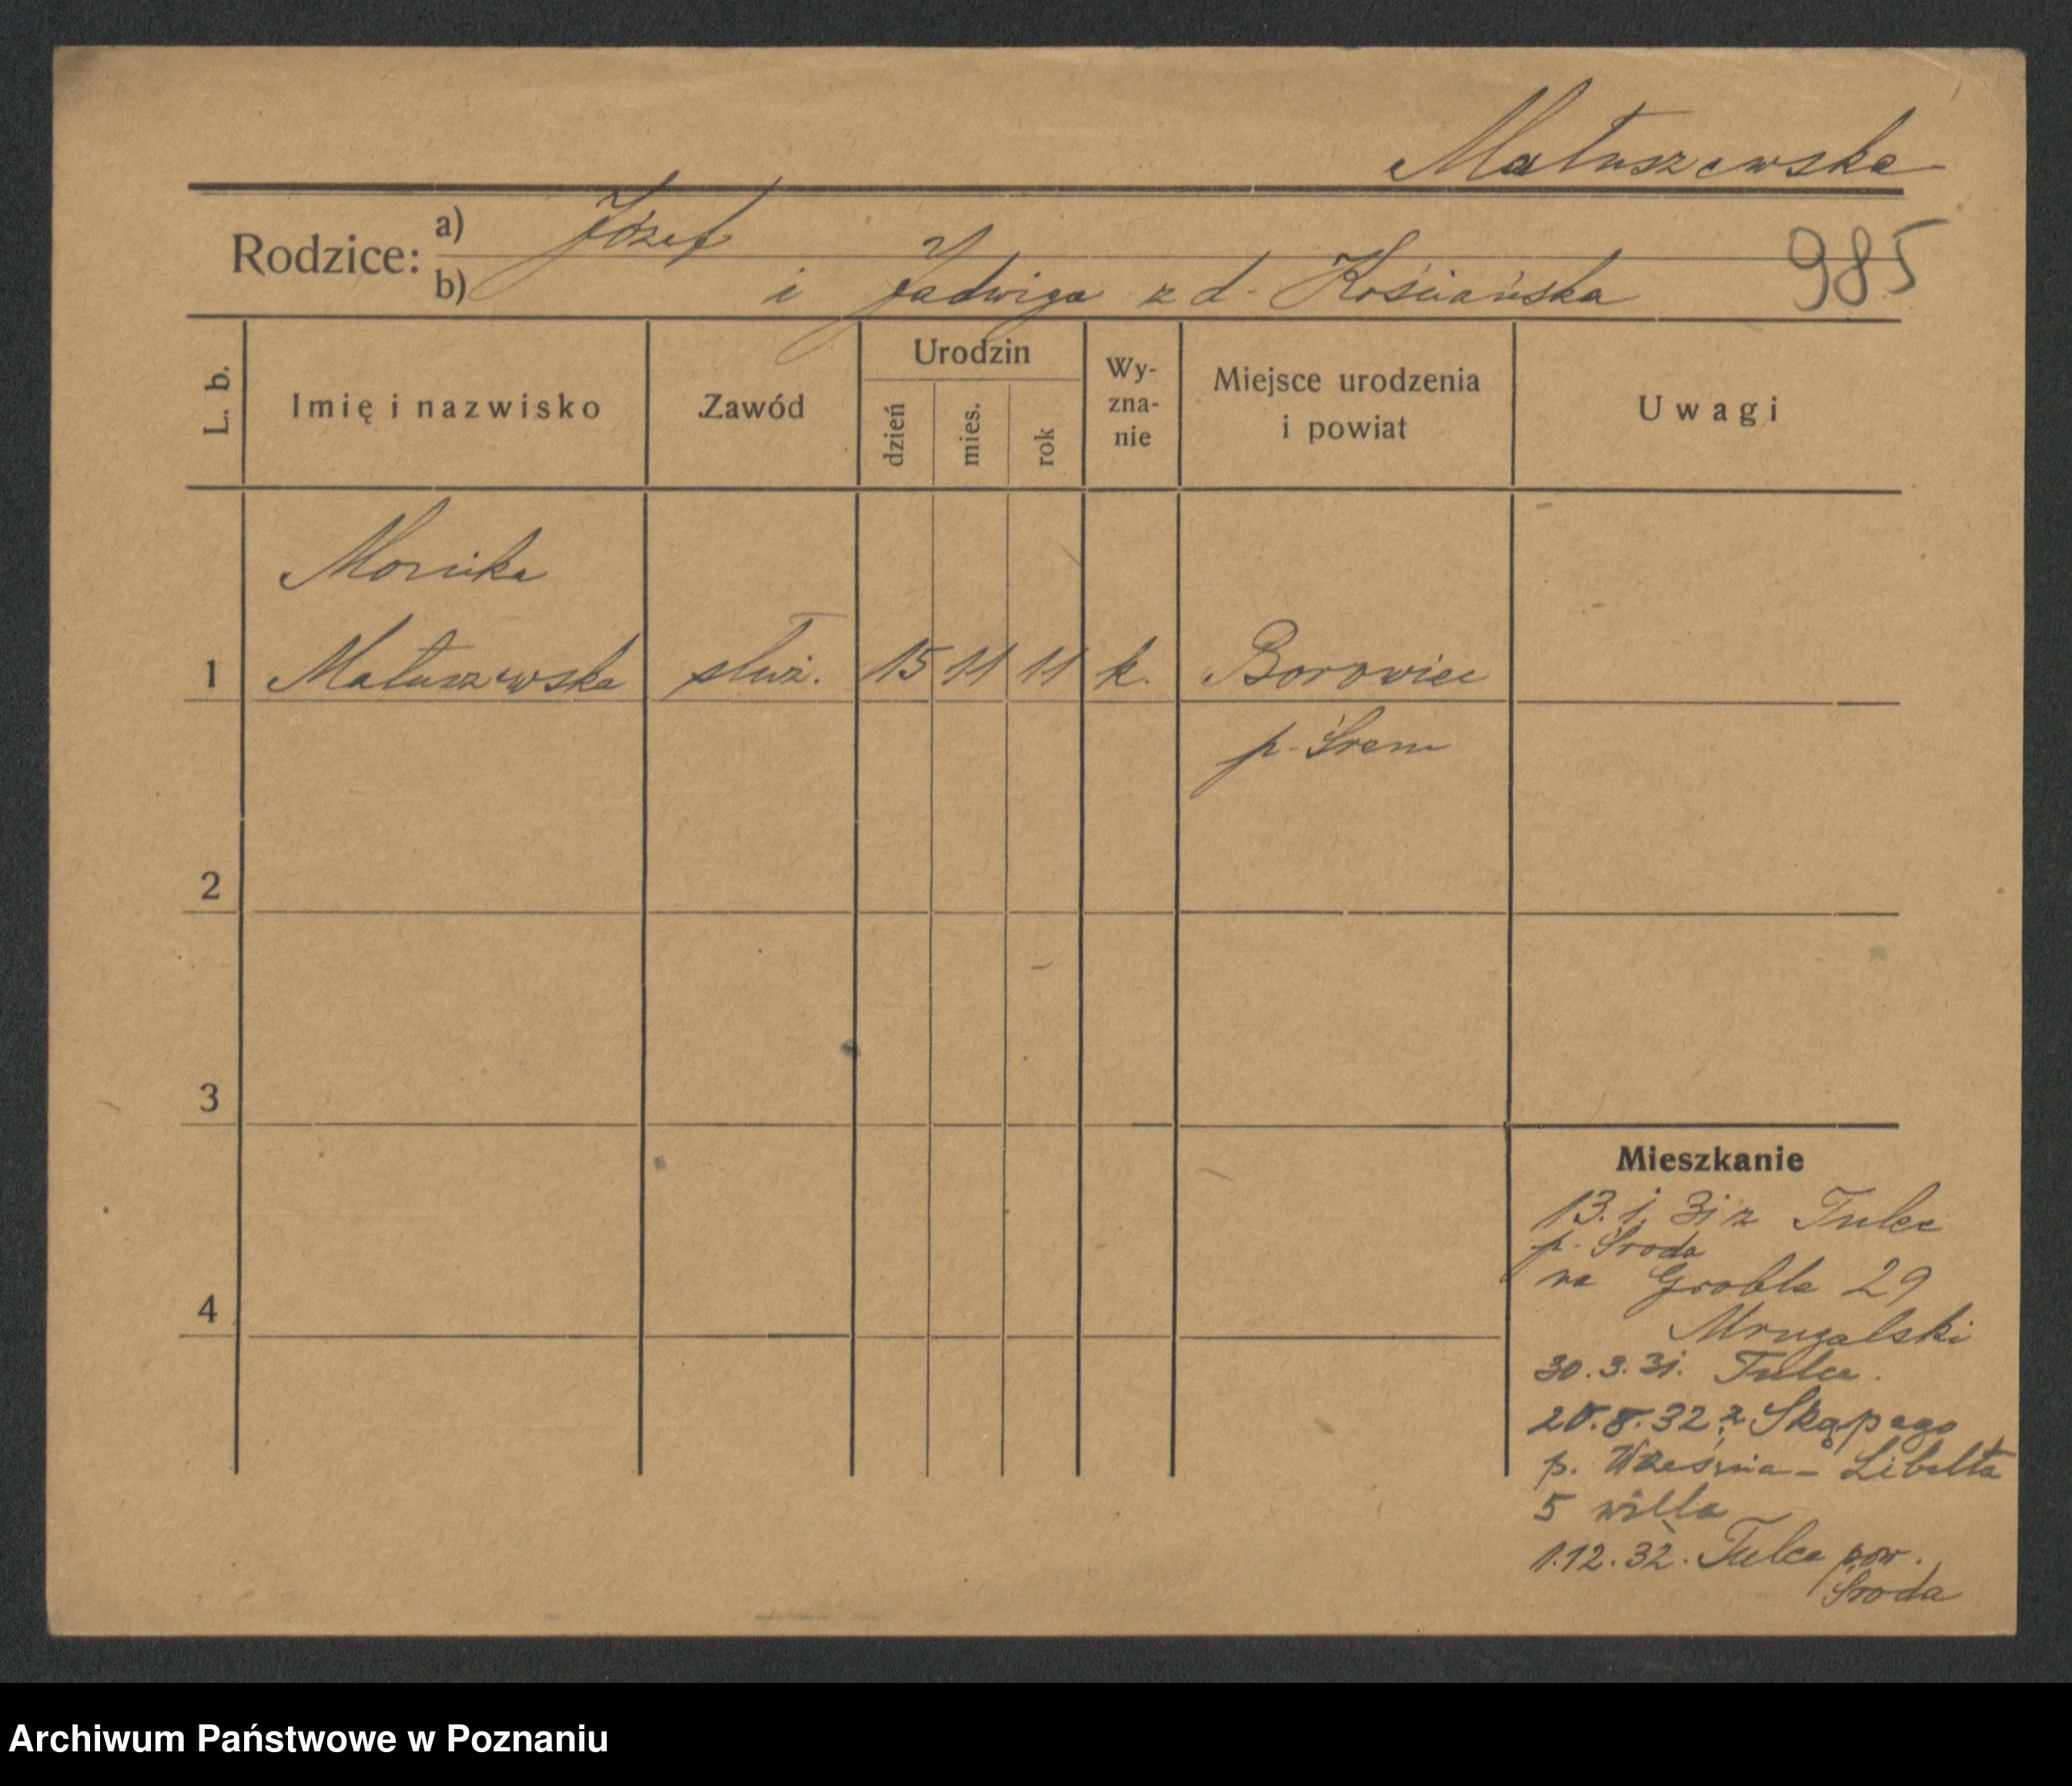 Matuszewska
Rodzice: a) Józef
b) i Jadwiga z d. Kościańska
985
L. b.
Imię i nazwisko
Zawód
Urodzin
dzień
mies.
rok
Wy-
zna-
nie
Miejsce urodzenia
i powiat
Uwagi
Monika
1 Matuszewska służ. 15 11 11 k. Borowiec
p. Śrem
2
3
4
Mieszkanie
13.1.31 z Tulec
p. Środa
na Grobla 29
Mrugalski
30.3.31. Tulce.
20.8.32 z Skąpego
p. Września - Libelta
5 willa
1.12.32. Tulce pow.
Środa
Archiwum Państwowe w Poznaniu